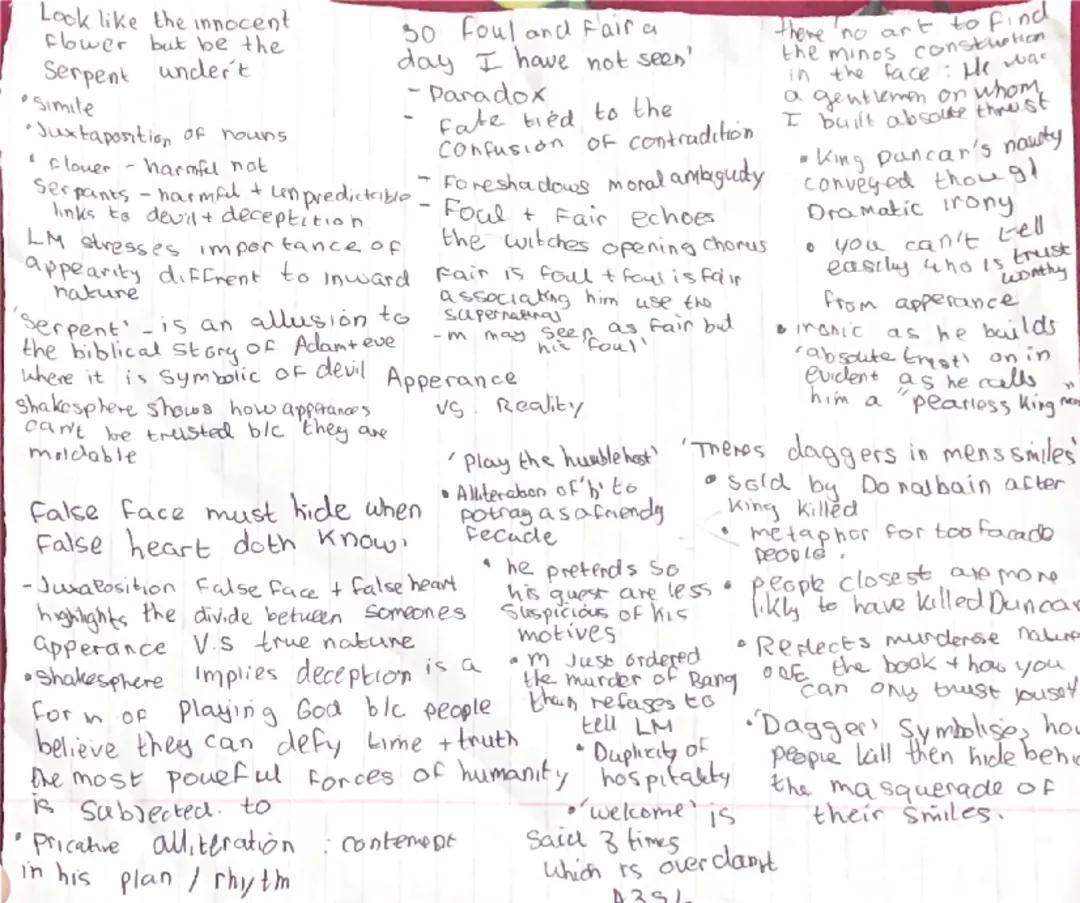 Look like the innocent
flower but be the
Serpent under't
• Simile
• Juxtaposition of nouns
• flower - harmful not
Serpants - harmful + unpredictable
links to devil + deceptition
LM stresses importance of
appearity diffrent to inward
nature
'Serpent' - is an allusion to
the biblical story of Adam + eve
where it is symbolic of devil
Shakesphere shows how apperances
can't be trusted b/c they are
moldable
False face must hide when
False heart doth know.
- Juxaposition False face + false heart
highlights the divide between someones
apperance V.s true nature
• Shakesphere implies deception is a
form of Playing God b/c people
believe they can defy time + truth
the most powerful forces of humanity
is subjected. to
• pricative alliteration : contempt
in his plan / rhytm
so foul and fair a
day I have not seen'
- Paradox
- fate tied to the
confusion of contradition
- Foreshadows moral ambiguity
- Foul + Fair echoes
the witches opening chorus
Fair is foul + foul is fair
associating him use the
supernatural
- m may seen as fair but
his 'foul'
Apperance
vs. Reality
'Play the humble host'
• Alliteration of 'h' to
potray as a friendy
fecade
• he pretends so
his guest are less
suspicious of his
motives
• m Just ordered
the murder of Banq
than refuses to
tell LM
• Duplicity of
hospitality
• 'welcome' is
said 3 times
which is over
there 'no art to find
the minds construction
in the face : He was
a gentlemen on whom
I built absolute thrust
• King Duncan's
conveyed though
Dramatic irony
• you can't tell
easily who is trust
worthy
from apperance
• ironic as he builds
'absolute trust' on in
evident as he calls
him a "pearless King
'Theres daggers in mens smiles'
• said by Donalbain after
King killed
• metaphor for too facade
people.
• people closest are more
likly to have killed Duncan
• Reflects murderose nature
of the book + how you
can only trust youself
• 'Dagger' Symbolises how
people kill then hide behi
the masquerade of
their smiles.